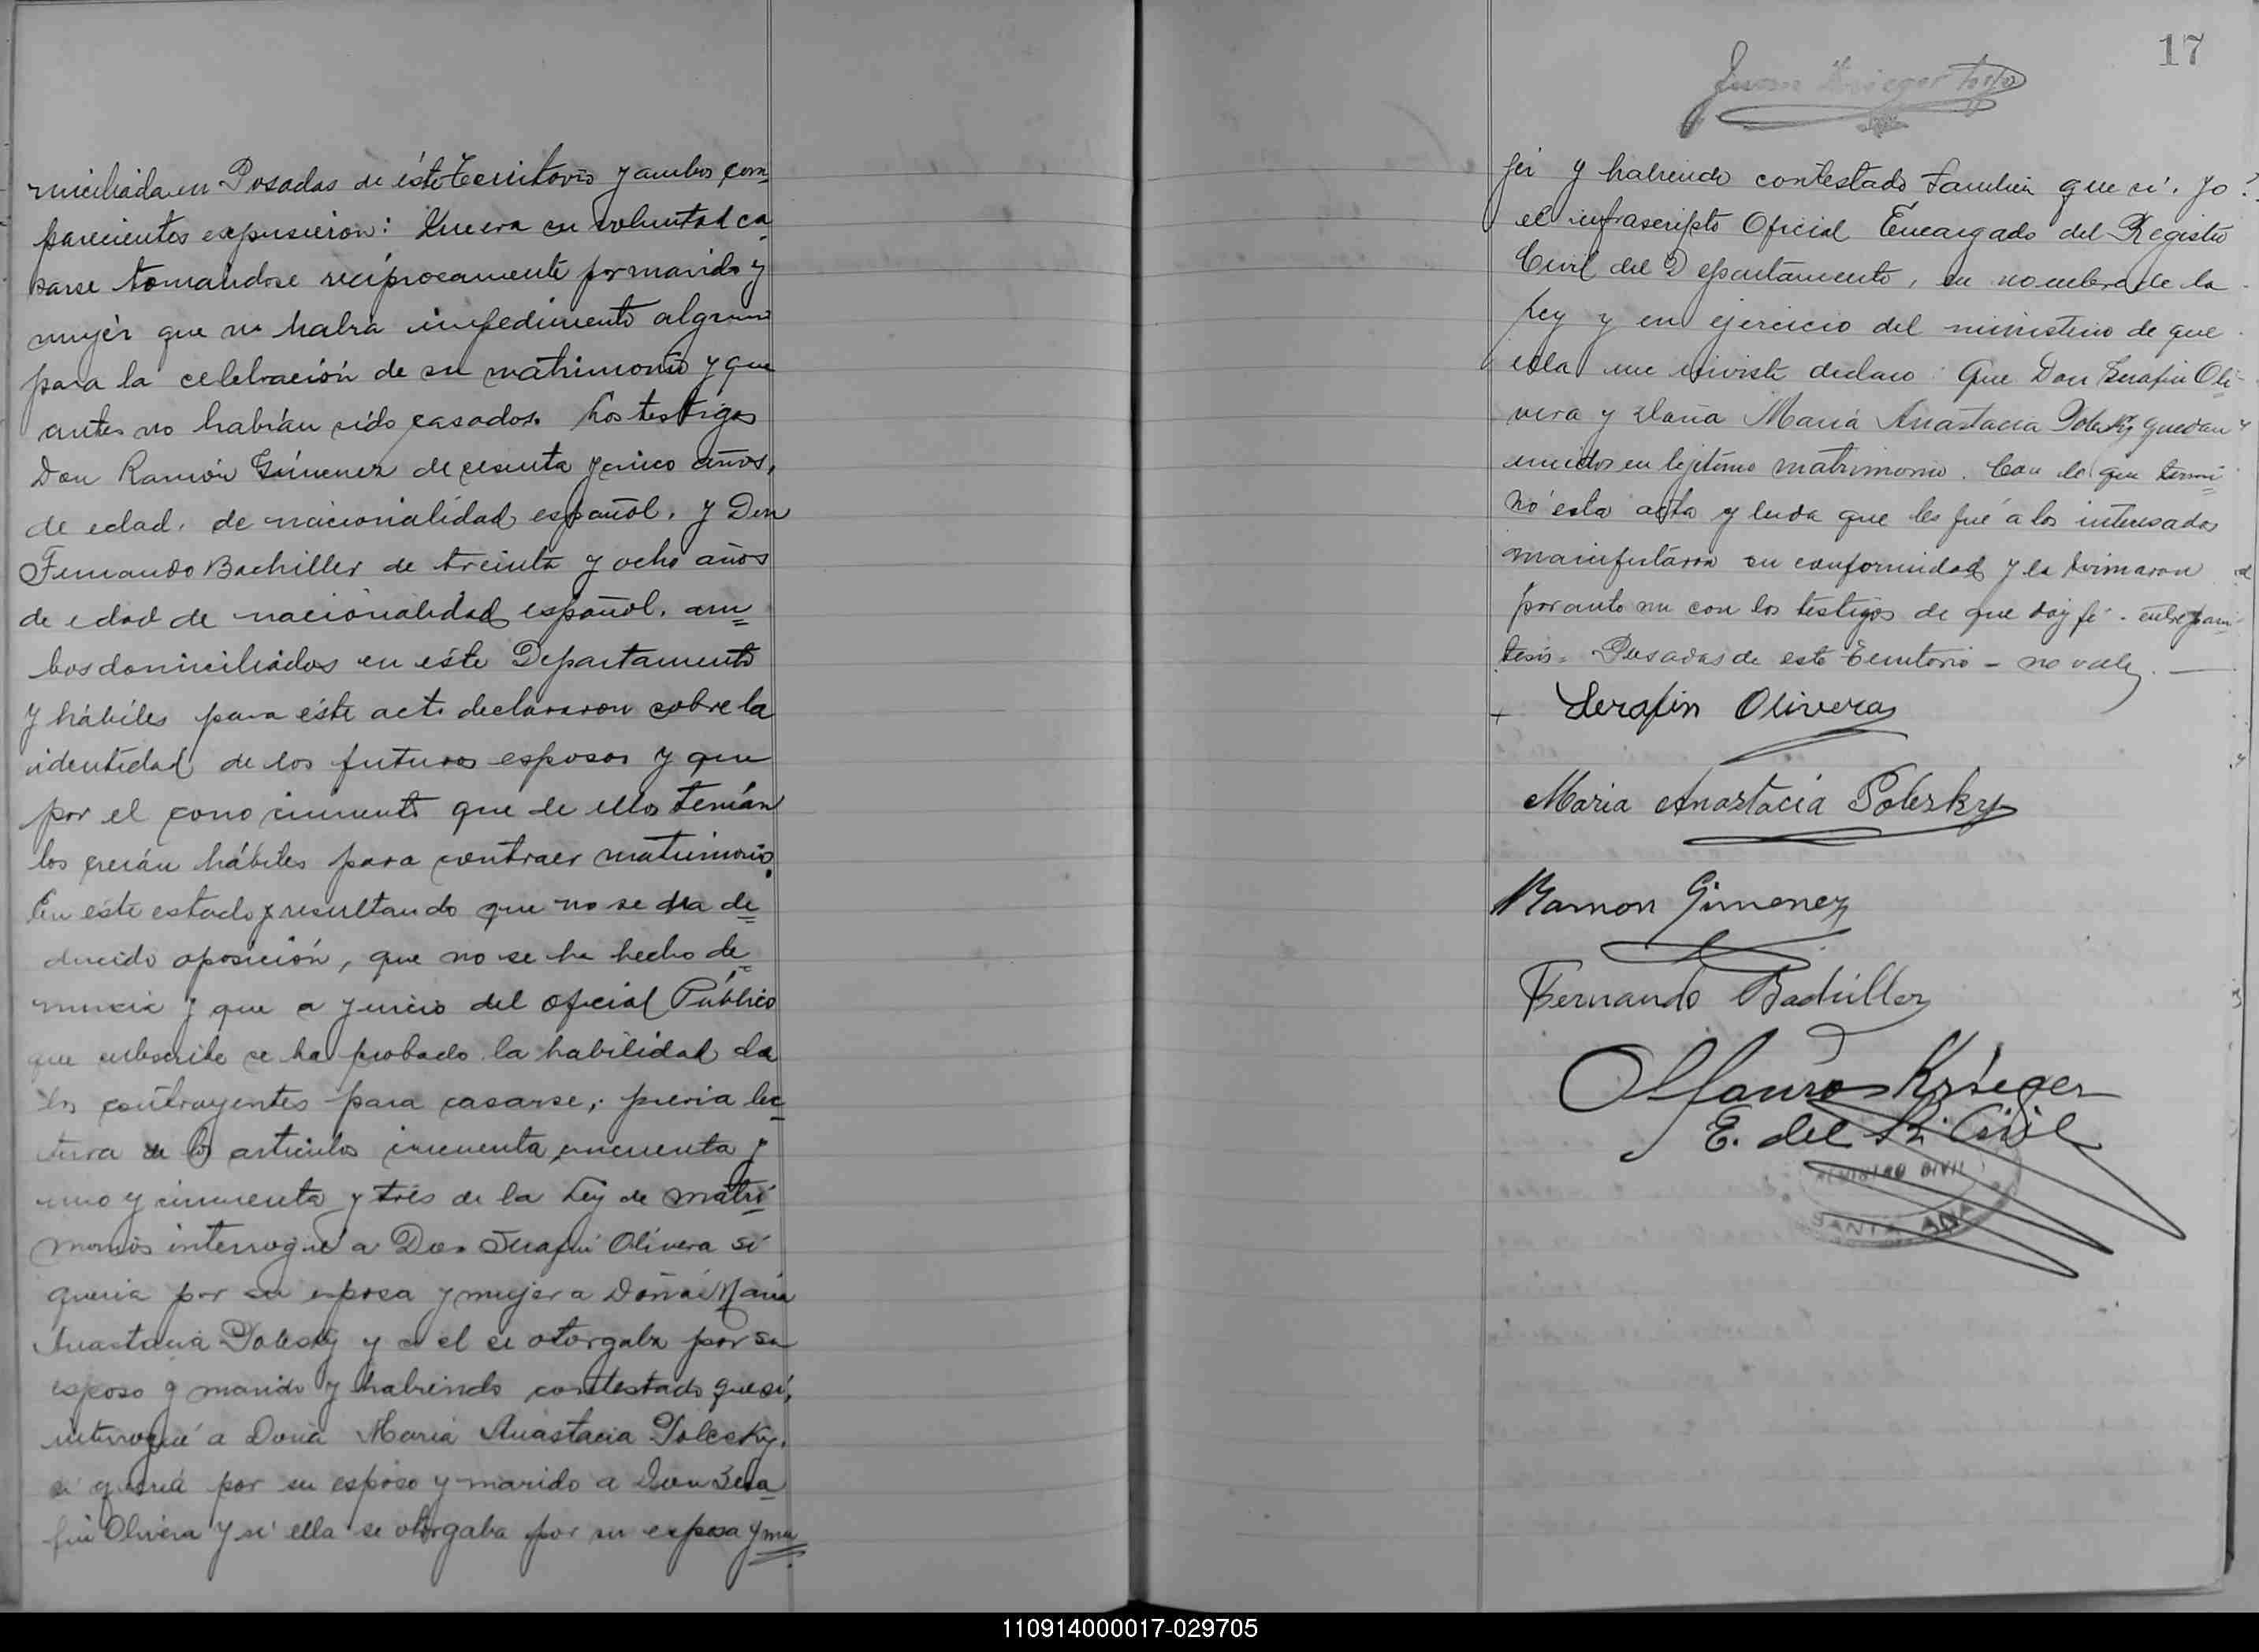 miciliada en Posadas de éste Territorio y ambos com
parecientes expusieron: Que era su voluntad ca
sarse tomandose reciprocamente por marido y
mujér que no habia impedimento alguno
para la celebración de su matrimonio y que
antes no habian sido casados. Los testigos
Don Ramón Gimenez de sesenta y cinco años,
de edad, de nacionalidad español, y Don
Fernando Bachiller de treinta y ocho años
de edad de nacionalidad español, am=
bos domiciliados en éste Departamento
y hábiles para éste acto declararon sobre la
identidad de los futuros esposos y que
por el conocimiento que de ellos tenian
los creián hábiles para contraer matrimonio.
En este estado y resultando que no se ha de=
ducido oposición, que no se ha hecho de=
nuncia y que a juicio del oficial Público
que subscribe se ha probado la habilidad de
los contrayentes para casarse, previa lec=
tura de los articulos cincuenta, cincuenta y
uno y cincuenta y trés de la Ley de matri=
monio interrogué a Don Serafin Olivera si
queria por su esposa y mujer a Doña Maria
Anastacia Polesky y a el se otorgaba por su
esposo y marido y habiendo contestado que si,
interrogué a Doña Maria Anastacia Polesky,
si queria por su esposo y marido a Don Sera=
fin Olivera y si ella se otorgaba por su esposa y mu=
17
Juan Krieger
jer y habiendo contestado tambien que si. Yo
el infrascripto Oficial Encargado del Registro
Civil del Departamento, en nombre de la
Ley y en ejercicio del ministerio de que
ella me inviste declaro: Que Don Serafin Oli=
vera y Doña Maria Anastacia Polesky quedan
unidos en lejitimo matrimonio. Con lo que termi=
nó esta acta y leida que les fué a los interesados
manifestáron su conformidad y la firmaron
por ante mi con los testigos de que doy fé. entre paren
tesis = Posadas de este Territorio - no vale.
Serafin Olivera
Maria Anastacia Polesky
Ramon Gimenez
Fernando Bachiller
Mauro Krieger
E. del R. Civil
REGISTRO CIVIL
SANTA ANA
110914000017-029705